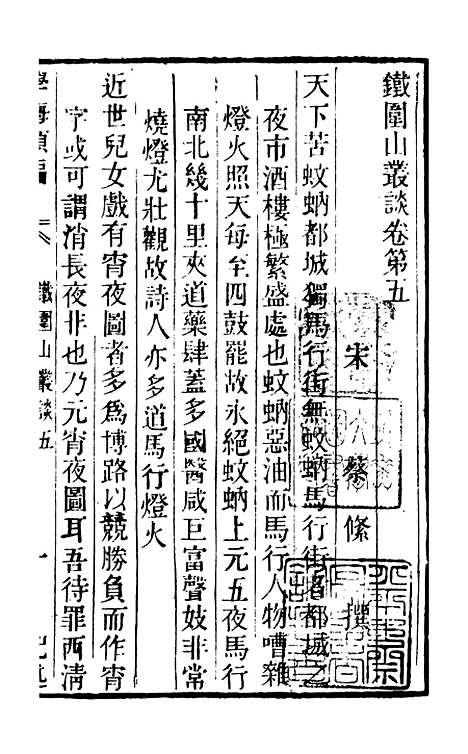 鐵圍山叢談卷第五
宋 蔡絛 撰
天下苦蚊蚋都城獨馬行街無蚊蚋馬行街者都城之
夜市酒樓極繁盛處也蚊蚋惡油而馬行人物嘈雜
燈火照天每至四鼓罷故永絕蚊蚋上元五夜馬行
南北幾十里夾道藥肆蓋多國醫咸巨富聲妓非常
燒燈尤壯觀故詩人亦多道馬行燈火
近世兒女戲有宵夜圖者多爲博路以競勝負而作宵
字或可謂消長夜非也乃元宵夜圖耳吾待罪西清
學海類編 鐵圍山叢談五 一